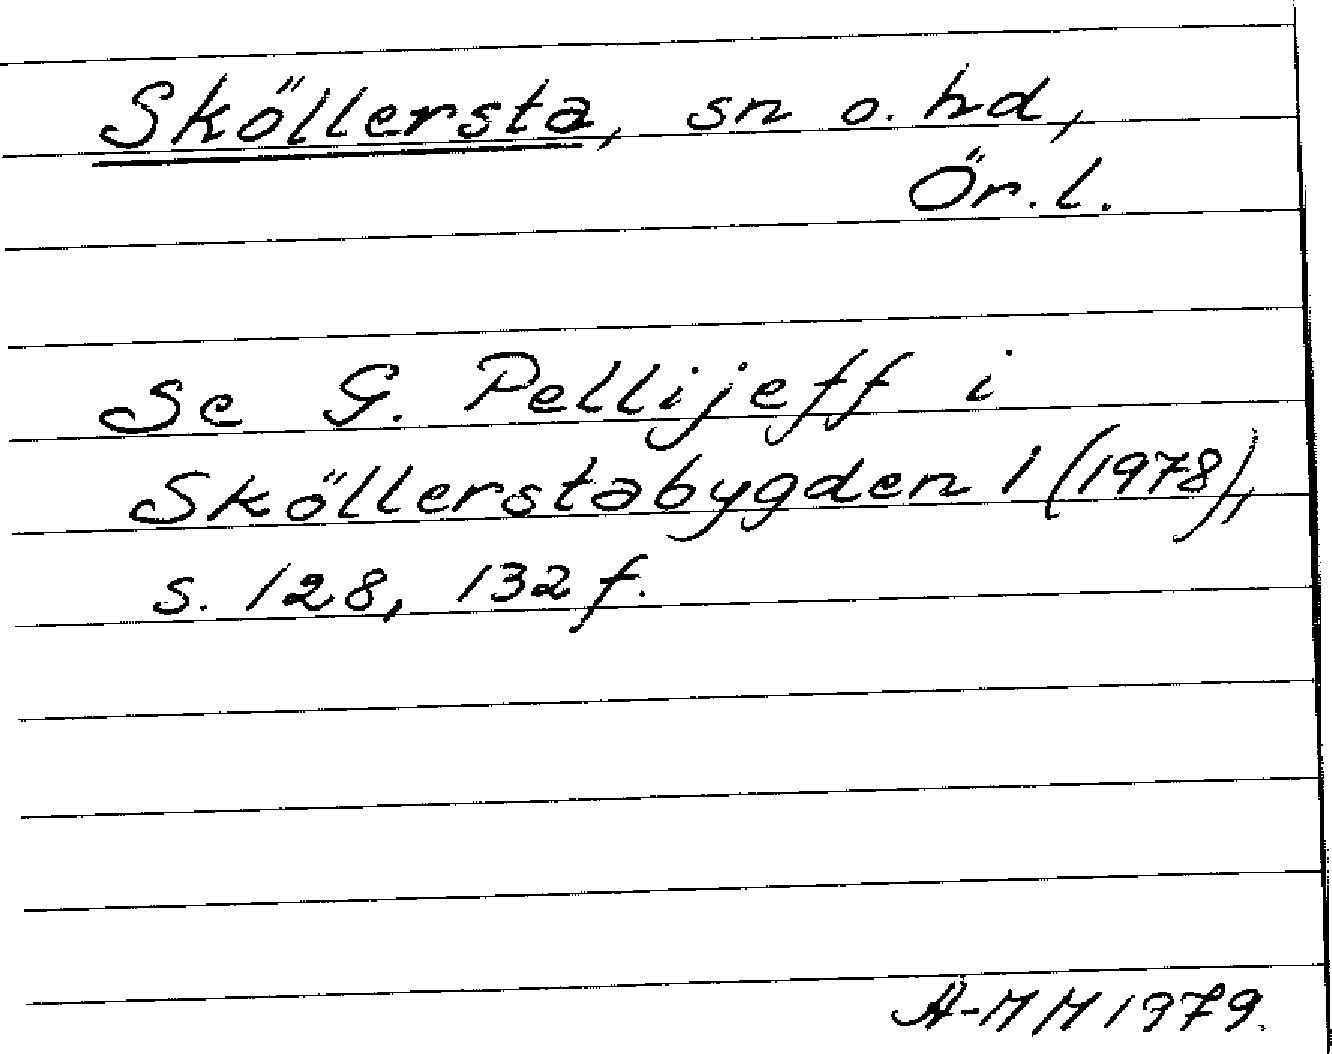 Sköllersta, sn o. hd,
Ör. l.
Se G. Pellijeff i
Sköllerstabygden 1 (1978),
s. 128, 132 f.
A-MM 1979.